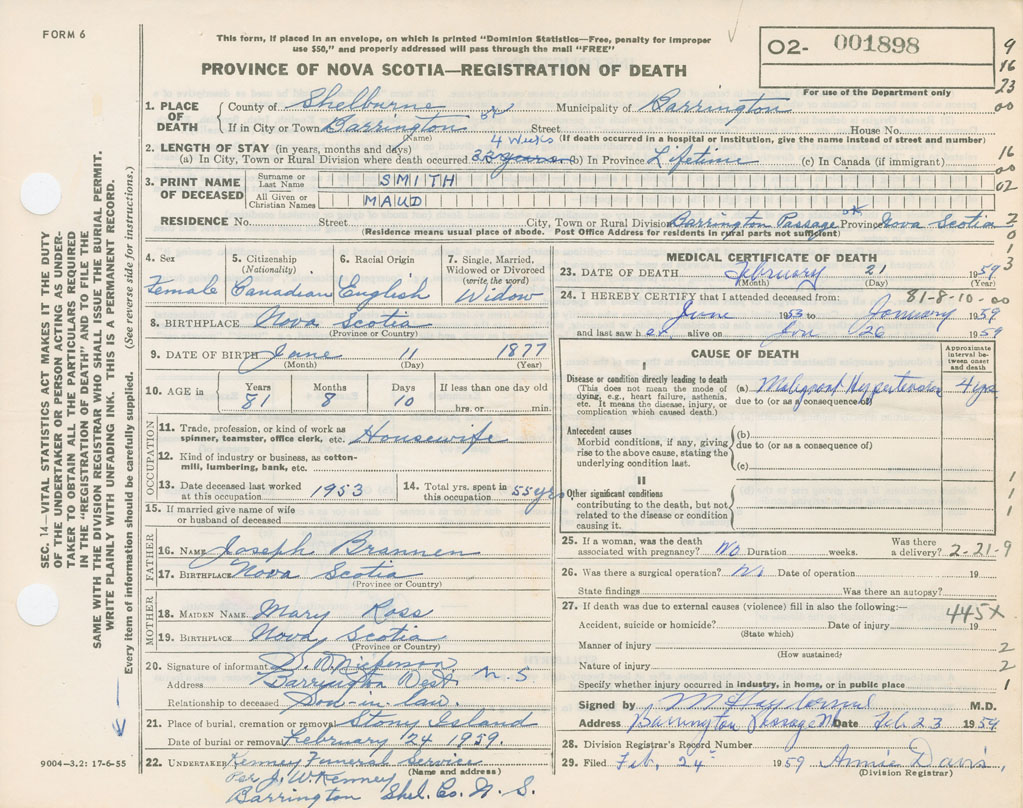 FORM 6
This form, if placed in an envelope, on which is printed "Dominion Statistics—Free, penalty for improper
use $50," and properly addressed will pass through the mail "FREE"
O2- 001898
For use of the Department only
PROVINCE OF NOVA SCOTIA—REGISTRATION OF DEATH
9
16
23
00
16
00
02
2
0
1
3
SEC. 14—VITAL STATISTICS ACT MAKES IT THE DUTY
OF THE UNDERTAKER OR PERSON ACTING AS UNDER-
TAKER TO OBTAIN ALL THE PARTICULARS REQUIRED
IN THE "REGISTRATION OF DEATH" AND TO FILE THE
SAME WITH THE DIVISION REGISTRAR WHO SHALL ISSUE THE BURIAL PERMIT.
WRITE PLAINLY WITH UNFADING INK. THIS IS A PERMANENT RECORD.
Every item of information should be carefully supplied. (See reverse side for instructions.)
1. PLACE OF DEATH County of Shelburne Municipality of Barrington
If in City or Town Barrington Street House No.
(Name) (If death occurred in a hospital or institution, give the name instead of street and number)
2. LENGTH OF STAY (in years, months and days) 4 weeks
(a) In City, Town or Rural Division where death occurred (b) In Province Lifetime (c) In Canada (if immigrant)
3. PRINT NAME OF DECEASED
Surname or Last Name SMITH
All Given or Christian Names MAUD
RESIDENCE No. Street City, Town or Rural Division Barrington Passage Province Nova Scotia
(Residence means usual place of abode. Post Office Address for residents in rural parts not sufficient)
4. Sex Female
5. Citizenship (Nationality) Canadian
6. Racial Origin English
7. Single, Married, Widowed or Divorced (write the word) Widow
8. BIRTHPLACE Nova Scotia
(Province or Country)
9. DATE OF BIRTH June 11 1877
(Month) (Day) (Year)
10. AGE in Years 81 Months 8 Days 10 If less than one day old hrs. or min.
OCCUPATION
11. Trade, profession, or kind of work as spinner, teamster, office clerk, etc. Housewife
12. Kind of industry or business, as cotton-mill, lumbering, bank, etc.
13. Date deceased last worked at this occupation 1953
14. Total yrs. spent in this occupation 55 yrs
15. If married give name of wife or husband of deceased
FATHER
16. NAME Joseph Brannen
17. BIRTHPLACE Nova Scotia
(Province or Country)
MOTHER
18. MAIDEN NAME Mary Ross
19. BIRTHPLACE Nova Scotia
(Province or Country)
20. Signature of informant Nickerson
Address Barrington West N.S
Relationship to deceased Son-in-law.
21. Place of burial, cremation or removal Stony Island
Date of burial or removal February 24 1959.
22. UNDERTAKER Kenney Funeral Service
(Name and address)
Per J. W. Kenney
Barrington Shel. Co. N. S.
9004—3.2: 17-6-55
MEDICAL CERTIFICATE OF DEATH
23. DATE OF DEATH February 21 1959
(Month) (Day) (Year)
24. I HEREBY CERTIFY that I attended deceased from: 81-8-10-00
June 1953 to January 1959
and last saw her alive on Jan 26 1959
CAUSE OF DEATH
Approximate interval between onset and death
I
Disease or condition directly leading to death (a) Malignant Hypertension 4 yrs
(This does not mean the mode of dying, e.g., heart failure, asthenia, etc. It means the disease, injury, or complication which caused death.)
due to (or as a consequence of)
Antecedent causes
Morbid conditions, if any, giving rise to the above cause, stating the underlying condition last.
(b)
due to (or as a consequence of)
(c)
II
Other significant conditions
contributing to the death, but not related to the disease or condition causing it.
1
1
1
25. If a woman, was the death associated with pregnancy? No Duration weeks. Was there a delivery? 2-21-9
26. Was there a surgical operation? No Date of operation 19
State findings Was there an autopsy?
27. If death was due to external causes (violence) fill in also the following:— 445X
Accident, suicide or homicide? Date of injury 19
(State which)
Manner of injury 2
(How sustained)
Nature of injury 2
Specify whether injury occurred in industry, in home, or in public place 1
Signed by M.D.
Address Barrington Passage Date Feb. 23 1959
28. Division Registrar's Record Number
29. Filed Feb. 24 1959 Annie Davis,
(Division Registrar)